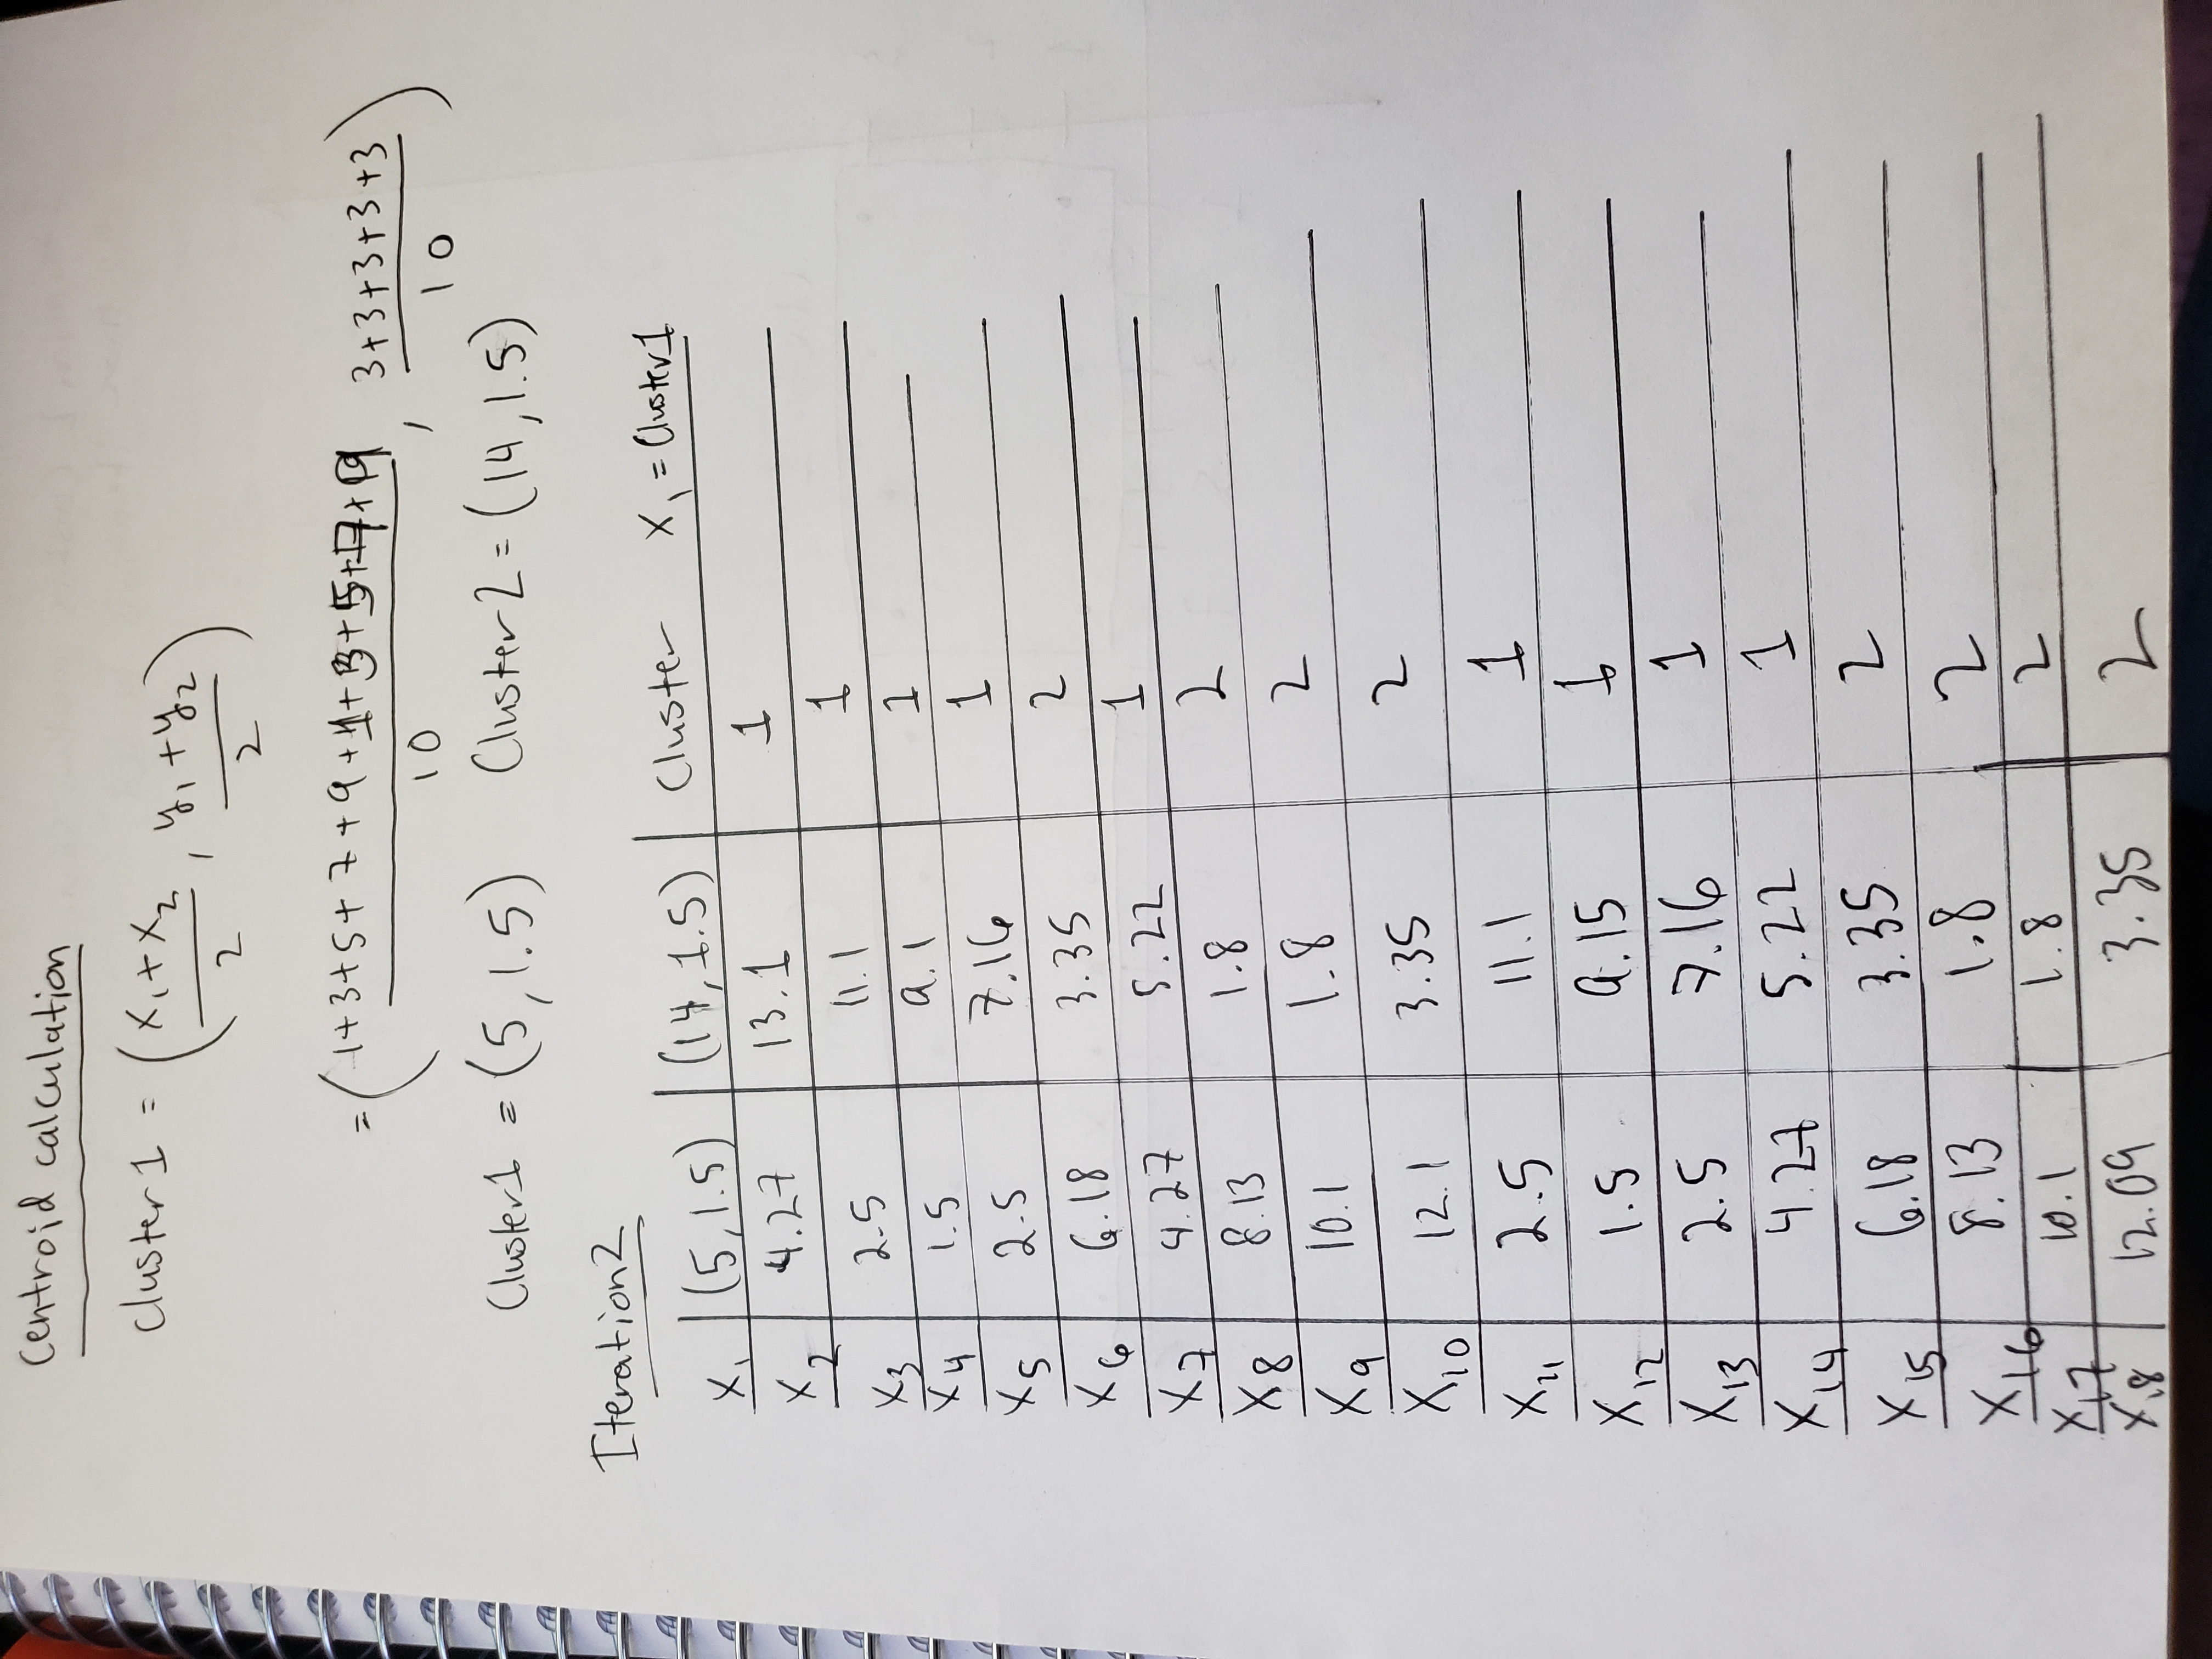 Centroid calculation
Cluster 1 = (x₁+x₂ / 2 , y₁+y₂ / 2)
= (1+3+5+7+9+1+3+5+7+9 / 10 , 3+3+3+3+3 / 10)
Cluster1 = (5, 1.5) Cluster2 = (14, 1.5)
Iteration2
x₁ (5,1.5) (14,1.5) Cluster x₁ = Cluster1
x₂ 4.27 13.1 1
x₃ 2.5 11.1 1
x₄ 1.5 9.1 1
x₅ 2.5 7.16 1
x₆ 6.18 3.35 2
x₇ 4.27 5.22 1
x₈ 8.13 1.8 2
x₉ 10.1 1.8 2
x₁₀ 12.1 3.35 2
x₁₁ 2.5 11.1 1
x₁₂ 1.5 9.15 1
x₁₃ 2.5 7.16 1
x₁₄ 4.27 5.22 1
x₁₅ 6.18 3.35 2
x₁₆ 8.13 1.8 2
x₁₇ 10.1 1.8 2
x₁₈ 12.09 3.35 2